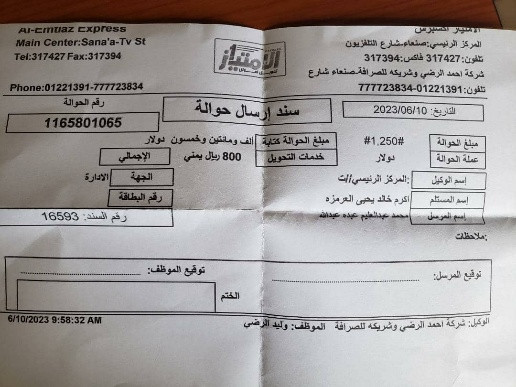 Al-Emtiaz Express
الامتياز اكسبرس
Main Center:Sana'a-Tv St
المركز الرئيسي:صنعاء-شارع التلفزيون
Tel:317427 Fax:317394
تلفون:317427 فاكس:317394
الإمتياز
شركة احمد الرضي وشريكه للصرافة-صنعاء شارع
Phone:01221391-777723834
تلفون:01221391-777723834
رقم الحوالة
1165801065
سند إرسال حوالة
التاريخ: 2023/06/10
مبلغ الحوالة #1,250#
مبلغ الحوالة كتابة الف ومانتين وخمسون دولار
عملة الحوالة دولار
خدمات التحويل 800 ريال يمني
الإجمالي
إسم الوكيل المركز الرئيسي//ت
الجهة الادارة
إسم المستلم اكرم خالد يحيى العرمزه
رقم البطاقة
إسم المرسل محمد عبدالعليم عبده عبدالله
رقم السند: 16593
ملاحظات:
توقيع المرسل:
توقيع الموظف:
الختم
6/10/2023 9:58:32 AM
الوكيل: شركة احمد الرضي وشريكه للصرافة الموظف: وليد الرضي